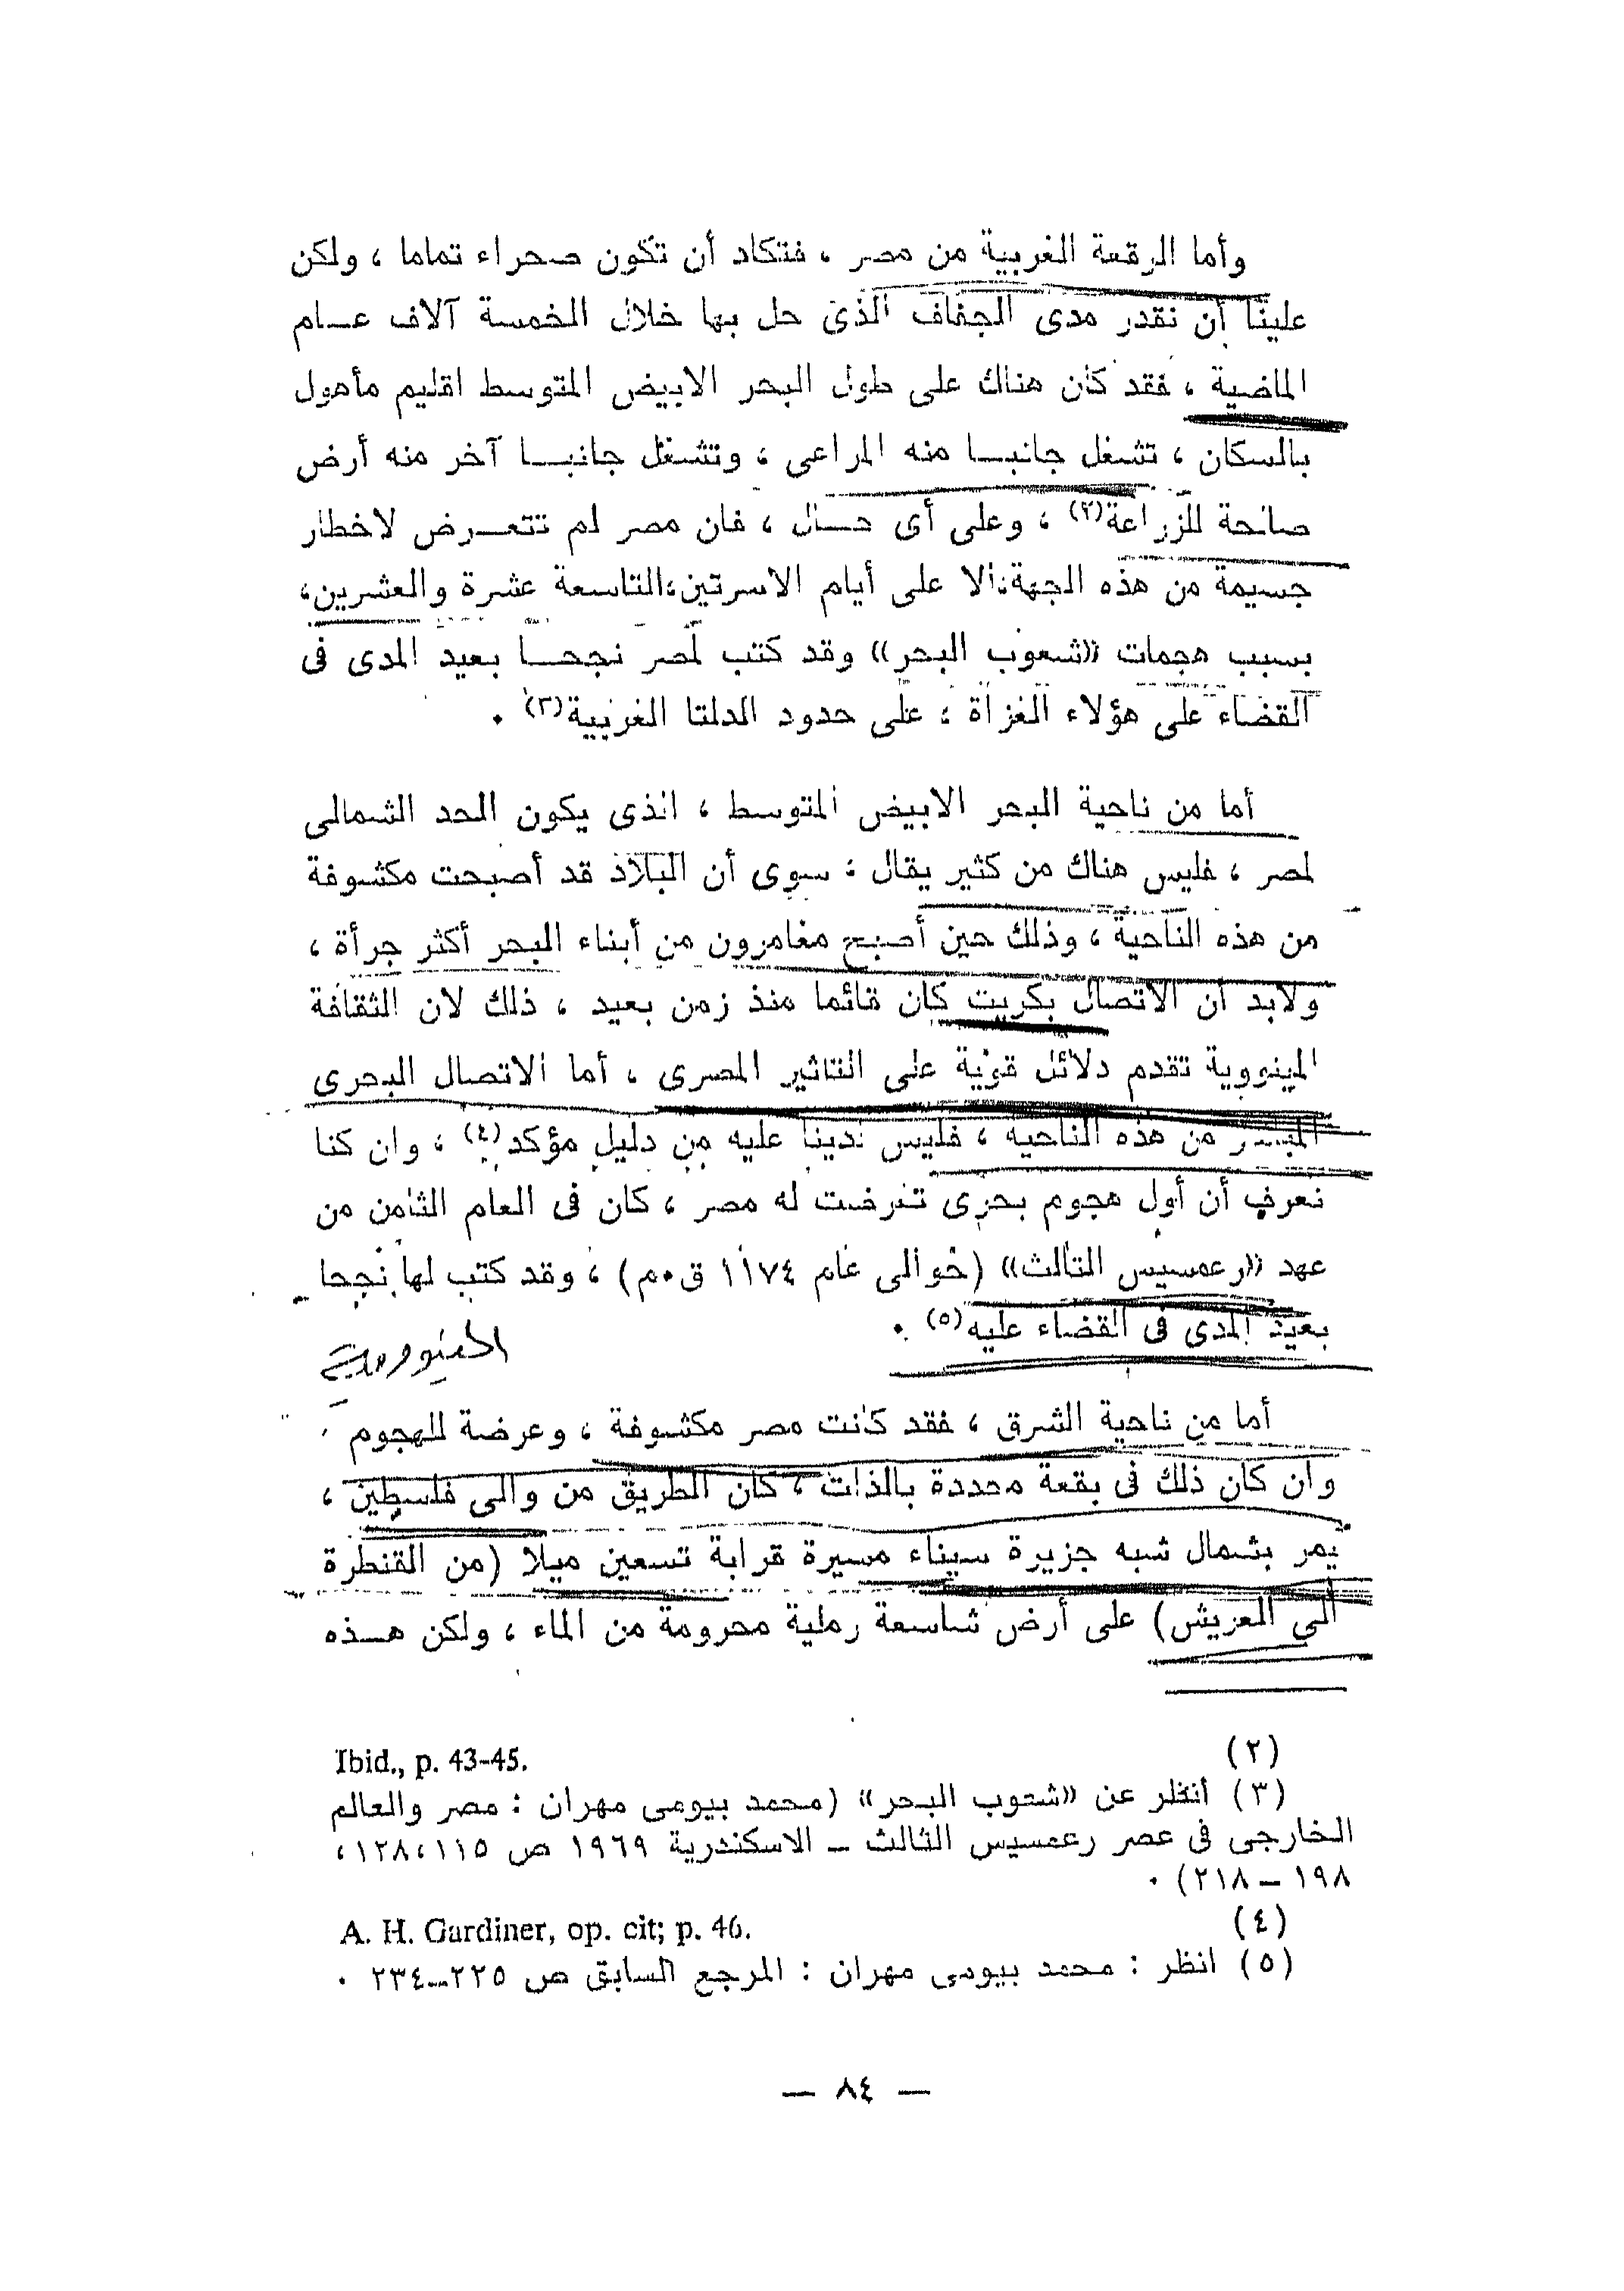 وأما الرقعة الغربية من مصر ، فتكاد أن تكون صحراء تماما ، ولكن
علينا أن نقدر مدى الجفاف الذى حل بها خلال الخمسة آلاف عــام
الماضية ، فقد كان هناك على طول البحر الابيض المتوسط اقليم مأهول
بالسكان ، تشغل جانبــا منه المراعى ، وتشغل جانبــا آخر منه أرض
صالحة للزراعة(٢) ، وعلى أى حــال ، فان مصر لم تتعــرض لاخطار
جسيمة من هذه الجهة، الا على أيام الاسرتين، التاسعة عشرة والعشرين،
بسبب هجمات «شعوب البحر» وقد كتب لمصر نجحــا بعيد المدى فى
القضاء على هؤلاء الغزاة ، على حدود الدلتا الغربية(٣) ٠
أما من ناحية البحر الابيض المتوسط ، الذى يكون الحد الشمالى
لمصر ، فليس هناك من كثير يقال ، سوى أن البلاد قد أصبحت مكشوفة
من هذه الناحية ، وذلك حين أصبح مغامرون من أبناء البحر أكثر جرأة ،
ولابد أن الاتصال بكريت كان قائما منذ زمن بعيد ، ذلك لان الثقافة
المينووية تقدم دلائل قوية على التاثير المصرى ، أما الاتصال البحرى
المباشر من هذه الناحية ، فليس لدينا عليه من دليل مؤكد(٤) ، وان كنا
نعرف أن أول هجوم بحرى تعرضت له مصر ، كان فى العام الثامن من
عهد «رعمسيس الثالث» (حوالى عام ١١٧٤ ق٠م) ، وقد كتب لها نجحا
بعيد المدى فى القضاء عليه(٥) ٠
أما من ناحية الشرق ، فقد كانت مصر مكشوفة ، وعرضة للهجوم
وان كان ذلك فى بقعة محددة بالذات ، كان الطريق من والى فلسطين ،
يمر بشمال شبه جزيرة سيناء مسيرة قرابة تسعين ميلا (من القنطرة
الى العريش) على أرض شاسعة رملية محرومة من الماء ، ولكن هــذه
(٢) Ibid., p. 43-45.
(٣) انظر عن «شعوب البحر» (محمد بيومى مهران : مصر والعالم
الخارجى فى عصر رعمسيس الثالث ــ الاسكندرية ١٩٦٩ ص ١١٥، ١٢٨،
١٩٨ ــ ٢١٨) ٠
(٤) A. H. Gardiner, op. cit; p. 46.
(٥) انظر : محمد بيومى مهران : المرجع السابق ص ٢٢٥ــ٢٣٤ ٠
— ٨٤ —